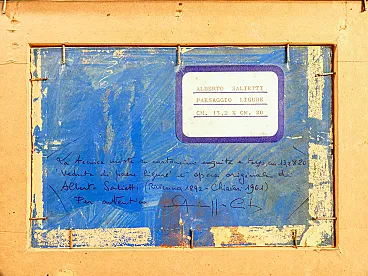 ALBERTO SALIETTI
PAESAGGIO LIGURE
CM. 13,2 X CM. 20
La tecnica mista su cartoncino eseguita a tergo cm 13,2x20
"Veduta di paese ligure" è opera originale di
Alberto Salietti (Ravenna 1892 - Chiavari 1961)
Per autentica